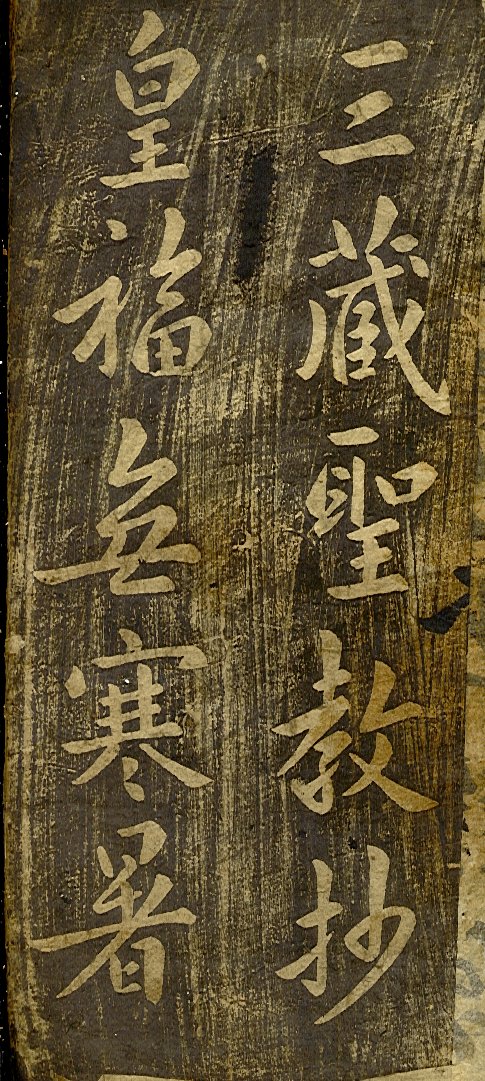 三藏聖教抄
皇福無寒暑